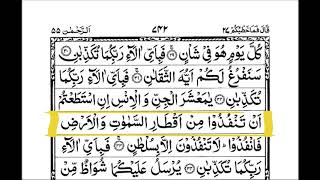 قَالَ فَمَا خَطْبُكُمْ ٢٧ ٧٤٢ اَلرَّحْمٰن ٥٥
كُلَّ يَوْمٍ هُوَ فِيْ شَاْنٍ ۚ‏ ﴿٢٩﴾ فَبِاَيِّ اٰلَآءِ رَبِّكُمَا تُكَذِّبٰنِ ﴿٣٠﴾
سَنَفْرُغُ لَكُمْ اَيُّهَ الثَّقَلٰنِ ۚ‏ ﴿٣١﴾ فَبِاَيِّ اٰلَآءِ رَبِّكُمَا
تُكَذِّبٰنِ ﴿٣٢﴾ يٰمَعْشَرَ الْجِنِّ وَالْاِنْسِ اِنِ اسْتَطَعْتُمْ
اَنْ تَنْفُذُوْا مِنْ اَقْطَارِ السَّمٰوٰتِ وَالْاَرْضِ
فَانْفُذُوْا ؕ لَا تَنْفُذُوْنَ اِلَّا بِسُلْطٰنٍ ۚ‏ ﴿٣٣﴾ فَبِاَيِّ اٰلَآءِ
رَبِّكُمَا تُكَذِّبٰنِ ﴿٣٤﴾ يُرْسَلُ عَلَيْكُمَا شُوَاظٌ مِّنْ